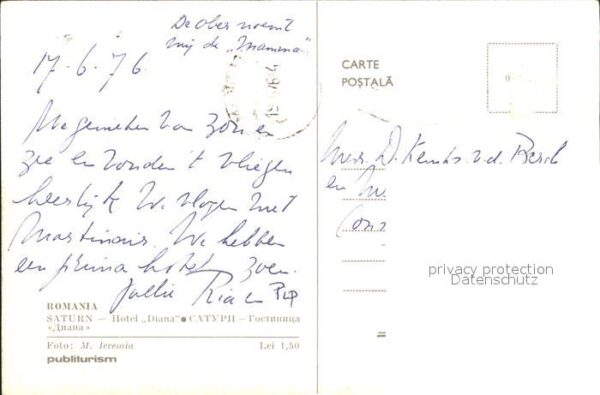 De ober noemt
mij de „Mamma"
17.6.76.
We genieten van zon en
zee en vonden 't vliegen
heerlijk We vlogen met
Martinair. We hebben
een prima hotel. Zoen.
Jullie Ria en
ROMANIA
SATURN — Hotel „Diana" ● САТУРН — Гостиница
«Диана»
Foto: M. Ieremia Lei 1,50
publiturism
CARTE
POȘTALĂ
Mevr. D. v.d.
en
privacy protection
Datenschutz